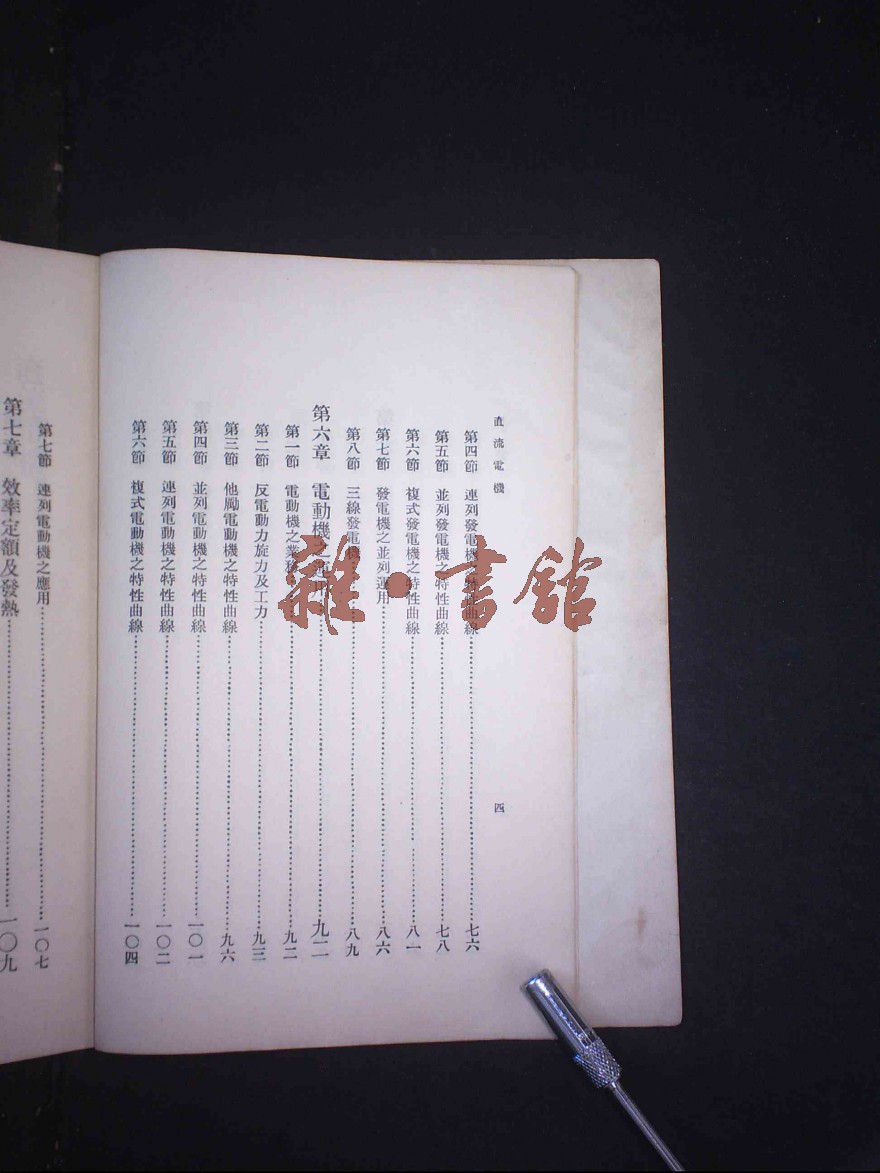 直流電機
四
第四節 連列發電機之特性曲線……七六
第五節 並列發電機之特性曲線……七八
第六節 複式發電機之特性曲線……八一
第七節 發電機之並列運用……八六
第八節 三線發電機……八九
第六章 電動機之運用……九二
第一節 電動機之業務……九二
第二節 反電動力旋力及工力……九三
第三節 他勵電動機之特性曲線……九六
第四節 並列電動機之特性曲線……一〇一
第五節 連列電動機之特性曲線……一〇二
第六節 複式電動機之特性曲線……一〇四
第七節 連列電動機之應用……一〇七
第七章 效率定額及發熱……一〇九
雜·書館